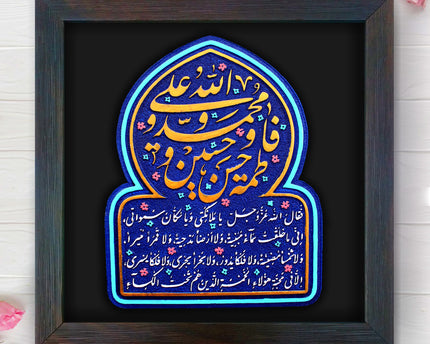 الله
علی
و محمد و
فاطمة و حسن و حسین
فقال الله عز وجل يا ملائكتي ويا سكان سمواتي،
إني ما خلقت سماء مبنية، ولا أرضا مدحية، ولا قمرا منيرا،
ولا شمسا مضيئة، ولا فلكا يدور، ولا بحرا يجري، ولا فلكا يسري،
إلا في محبة هؤلاء الخمسة الذين هم تحت الكساء